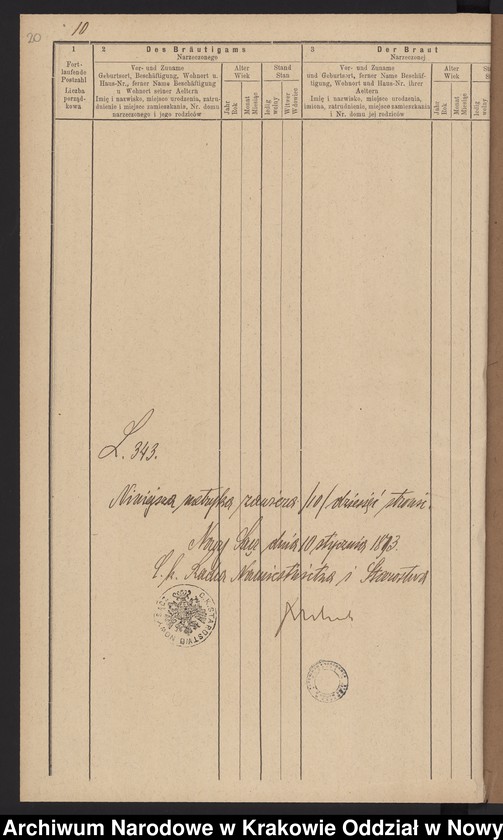 20
10
1
Fort-
laufende
Postzahl
Liczba
porząd-
kowa
2 Des Bräutigams
Narzeczonego
Ver- und Zuname
Geburtsort, Beschäftigung, Wohnort u.
Haus-Nr., ferner Name Beschäftigung
u Wohnort seiner Aeltern
Imię i nazwisko, miejsce urodzenia, zatru-
dnienie i miejsce zamieszkania, Nr. domu
narzeczonego i jego rodziców
Alter
Wiek
Jahr
Rok
Monat
Miesiąc
Stand
Stan
ledig
wolny
Witwer
Wdowiec
3 Der Braut
Narzeczonej
Ver- und Zuname
und Geburtsort, ferner Name Beschäf-
tigung, Wohnort und Haus-Nr. ihrer
Aeltern
Imię i nazwisko, miejsce urodzenia,
zatrudnienie, miejsce zamieszkania
i Nr. domu jej rodziców
Alter
Wiek
Jahr
Rok
Monat
Miesiąc
ledig
wolny
L. 343.
Niniejsza metryka zawiera /10/ dziesięć stron.
Nowy Sącz dnia 10 stycznia 1893.
C. k. Radca Namiestnictwa i Starostwa
C. K. STAROSTWO NOWY SĄCZ
Archiwum Narodowe w Krakowie Oddział w Nowy